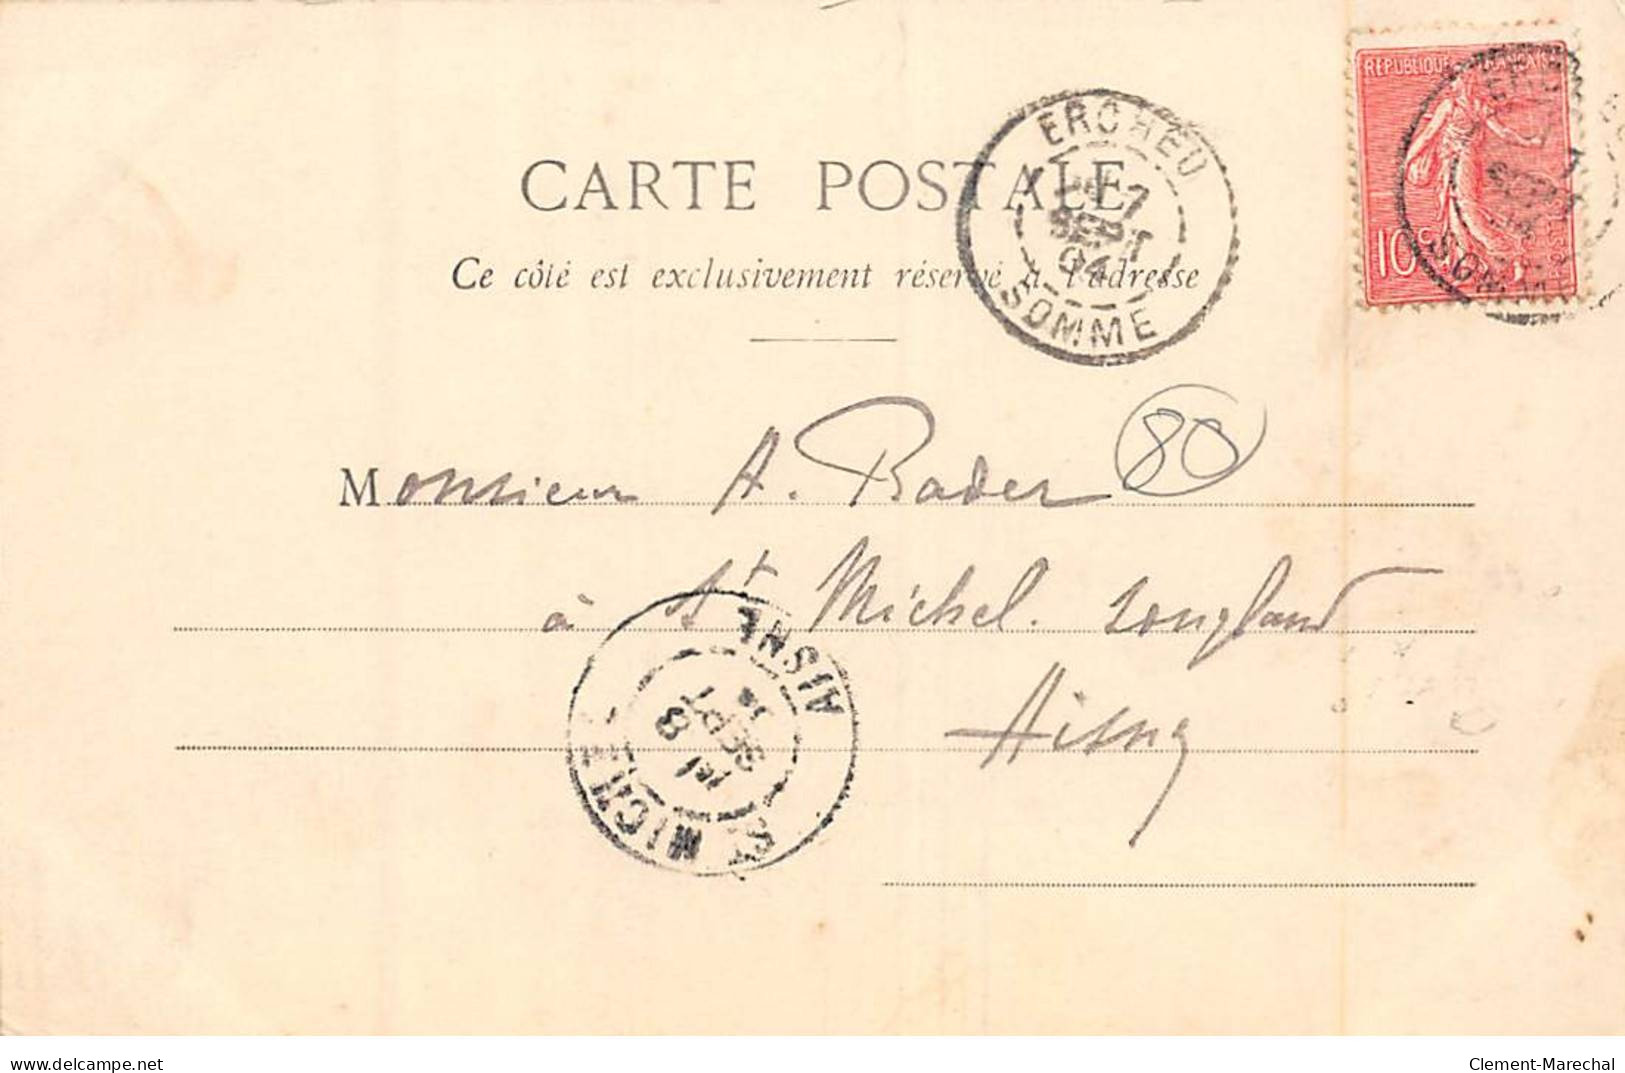 RÉPUBLIQUE FRANÇAISE
10c
ERCHEU
7
SEPT
04
SOMME
CARTE POSTALE
Ce côté est exclusivement réservé à l'adresse
Monsieur A. Bader
80
à St Michel. Songland
Aisne
AISNE
8
SEPT
ST MICHEL
www.delcampe.net
Clement-Marechal